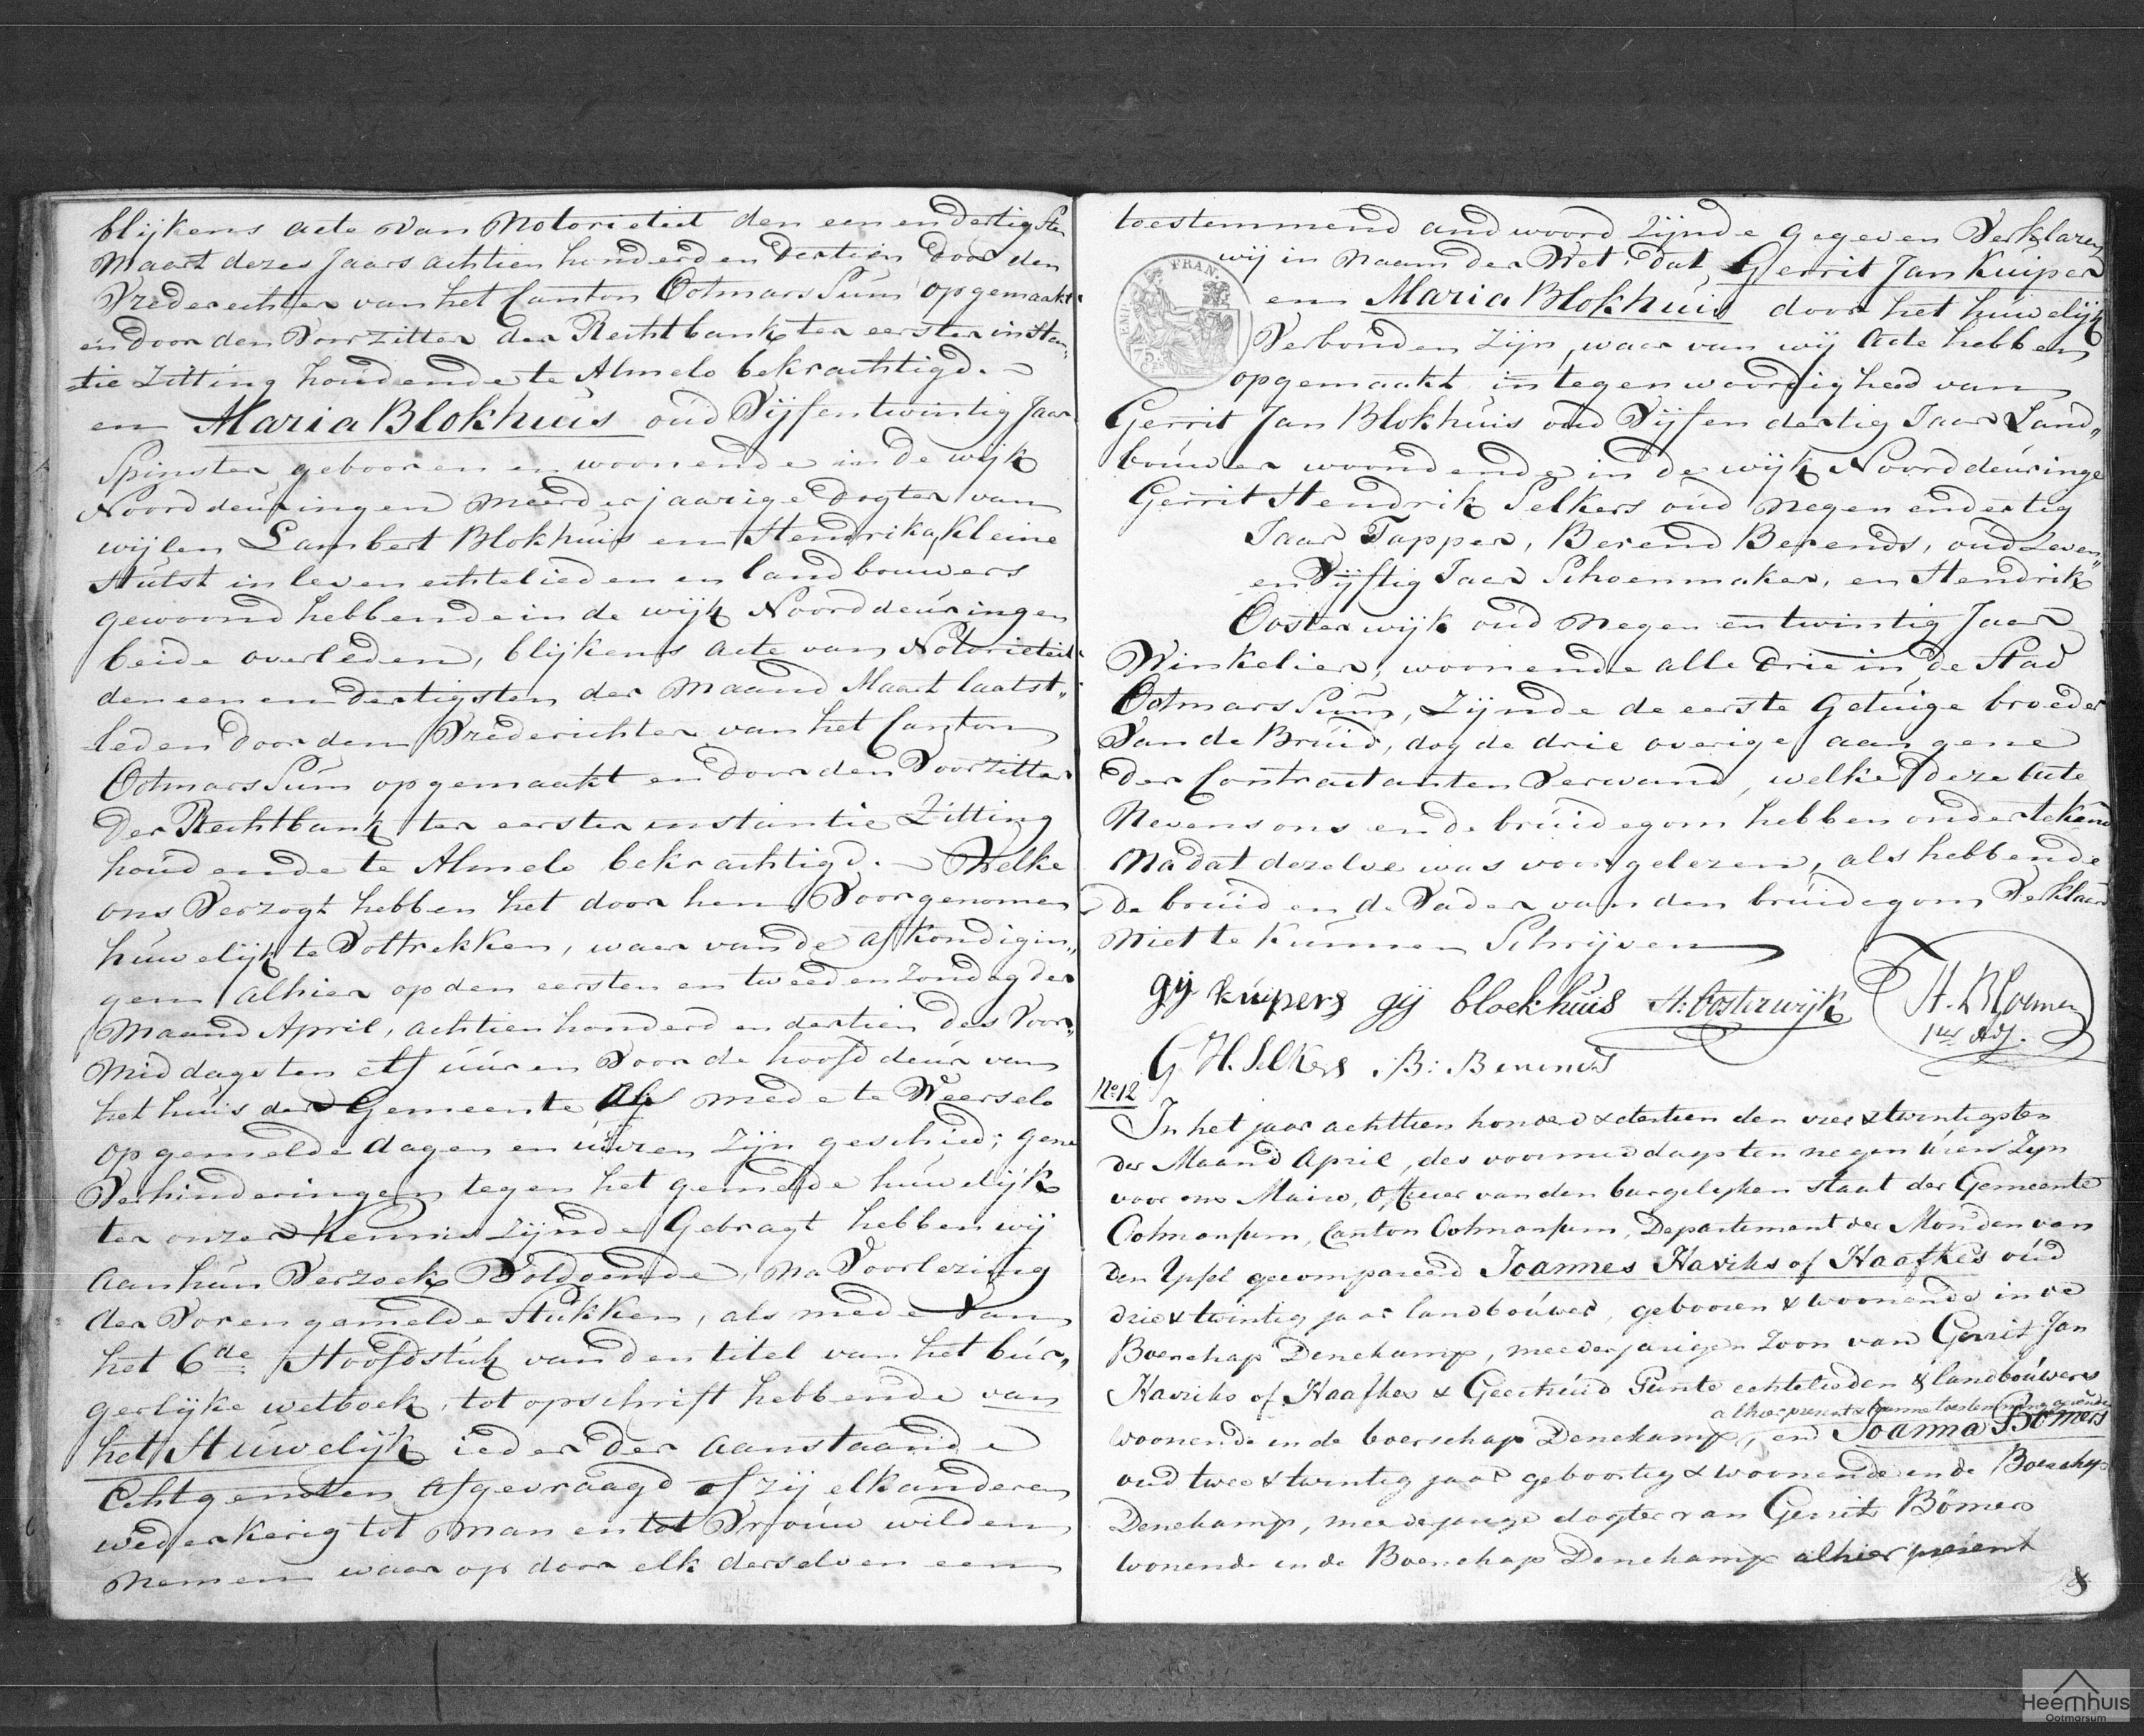 blijkens acte van Notorieteit den een en dertigsten
Maart dezes Jaars achtien honderd en dertien door den
Vrederechter van het Canton Ootmarssum opgemaakt
en door den Voorzitter der Rechtbank ter eerster instan„
tie Zitting houdende te Almelo bekrachtigd. –
en Maria Blokhuis oud Vijf en twintig Jaar
Spinster gebooren en woonende in de wijk
Noorddeuringen meerderjaarige Dogter van
wijlen Lambert Blokhuis en Hendrika Kleine
Hulst in leven echtelieden en landbouwers
gewoond hebbende in de wijk Noorddeuringen
beide overleden, blijkens acte van Notorieteit
den een en dertigsten der Maand Maart laatst„
leden door den Vrederichter van het Canton
Ootmarssum opgemaakt en door den Voorzitter
der Rechtbank ter eerster instantie Zitting
houdende te Almelo bekrachtigd. – Welke
ons Verzogt hebben het door hen Voorgenomen
huwelijk te Voltrekken, waar van de afkondigin„
gen alhier op den eersten en tweeden zondag der
Maand April, achtien honderd en dertien des Voor„
middags ten elf uuren Voor de hoofd deur van
het huis der Gemeente als mede te Weerselo
op gemelde dagen en uuren zijn geschied; gene
Verhinderingen tegen het gemelde huwelijk
ter onzer Kennis zijnde Gebragt hebben wij
aan hun Verzoek Voldoende, na Voorlezing
der Vorengemelde Stukken, als mede van
het 6de Hoofdstuk van den titel van het bur„
gerlijke wetboek, tot opschrift hebbende van
het Huwelijk ieder der aanstaande
Echtgenoten afgevraagd of zij elkanderen
wederkerig tot man en tot Vrouw wilden
nemen waar op door elk derselven een
toestemmend andwoord zijnde gegeven Verklaren
wij in naam der Wet, dat Gerrit Jan Kuiper
EMP. FRAN.
75. Ces
en Maria Blokhuis door het huwelijk
Verbonden zijn, waar van wij acte hebben
opgemaakt in tegenwoordigheid van
Gerrit Jan Blokhuis oud Vijf en dertig Jaar Land„
bouwer woonende in de wijk Noorddeuringe
Gerrit Hendrik Selkers oud negen en dertig
Jaar Tapper, Berend Berends, oud Zeven„
en Vijftig Jaar Schoenmaker, en Hendrik
Oosterwijk oud negen en twintig Jaar
Winkelier, woonende alle drie in de Stad
Ootmarssum, Zijnde de eerste Getuige broeder
Van de Bruid, dog de drie overige aan gene
der Contractanten Verwand, welke deze Acte
Nevens ons en de bruidegom hebben ondertekend
Na dat dezelve was voorgelezen, als hebbende
de bruid en de Vader van den bruidegom Verklaard
Niet te kunnen Schrijven
gij kuipers gij blockhuis H: Oosterwijk
G H. Selkers B: Berends
No 12
In het jaar achttien honderd & dertien den vier & twintigsten
der Maand April, des voormiddags ten negen uren zyn
voor ons Maire, officier van den burgelyken staat der Gemeente
Ootmarsum, Canton Ootmarsum, Departement der Monden van
den Yssel gecompareerd Joannes Haviks of Haafkes oud
drie & twintig jaar landbouwer, gebooren & woonende in de
Boerschap Denekamp, meederjarigen zoon van Gerrit Jan
Haviks of Haafkes & Geertruid Punte echtelieden & landbouwers
alhier present & hunne toestemming gevende
woonende in de boerschap Denekamp, end Joanna Bömers
oud twee & twintig jaar geboortig & woonende in de Boerschap
Denekamp, meederjarige dogter van Gerrit Bömers
wonende in de Boerschap Denekamp alhier present
&
Heemhuis
Ootmarsum